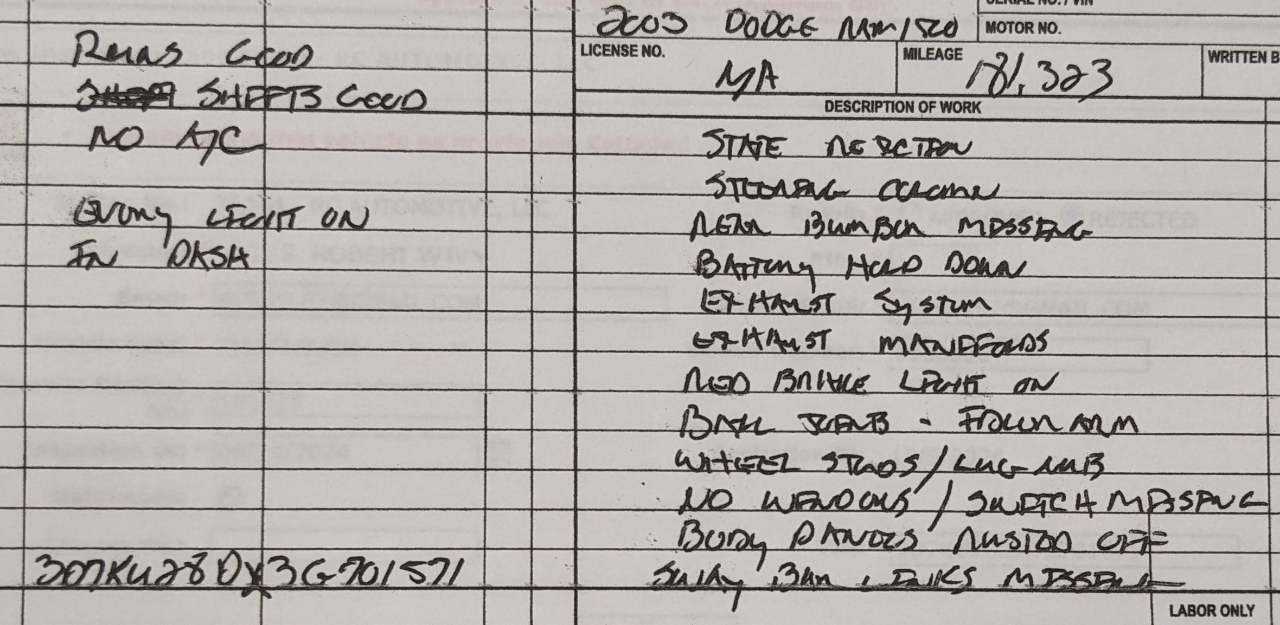 SERIAL NO. / VIN
2003 DODGE RAM 1500
MOTOR NO.
LICENSE NO.
MA
MILEAGE
181,323
WRITTEN B
DESCRIPTION OF WORK
RUNS GOOD
SHIFTS GOOD
NO A/C
EVERY LIGHT ON
IN DASH
3D7KU28DX3G701571
STATE REJECTION
STEERING COLUMN
REAR BUMBER MISSING
BATTERY HOLD DOWN
EXHAUST SYSTEM
EXHAUST MANIFOLDS
RED BRAKE LIGHT ON
BALL JOINTS - IDLER ARM
WHEEL STUDS / LUG NUTS
NO WINDOWS / SWITCH MISSING
BODY PANELS RUSTED OFF
SWAY BAR LINKS MISSING
LABOR ONLY
RC AUTOMOTIVE, LLC
REJECTED